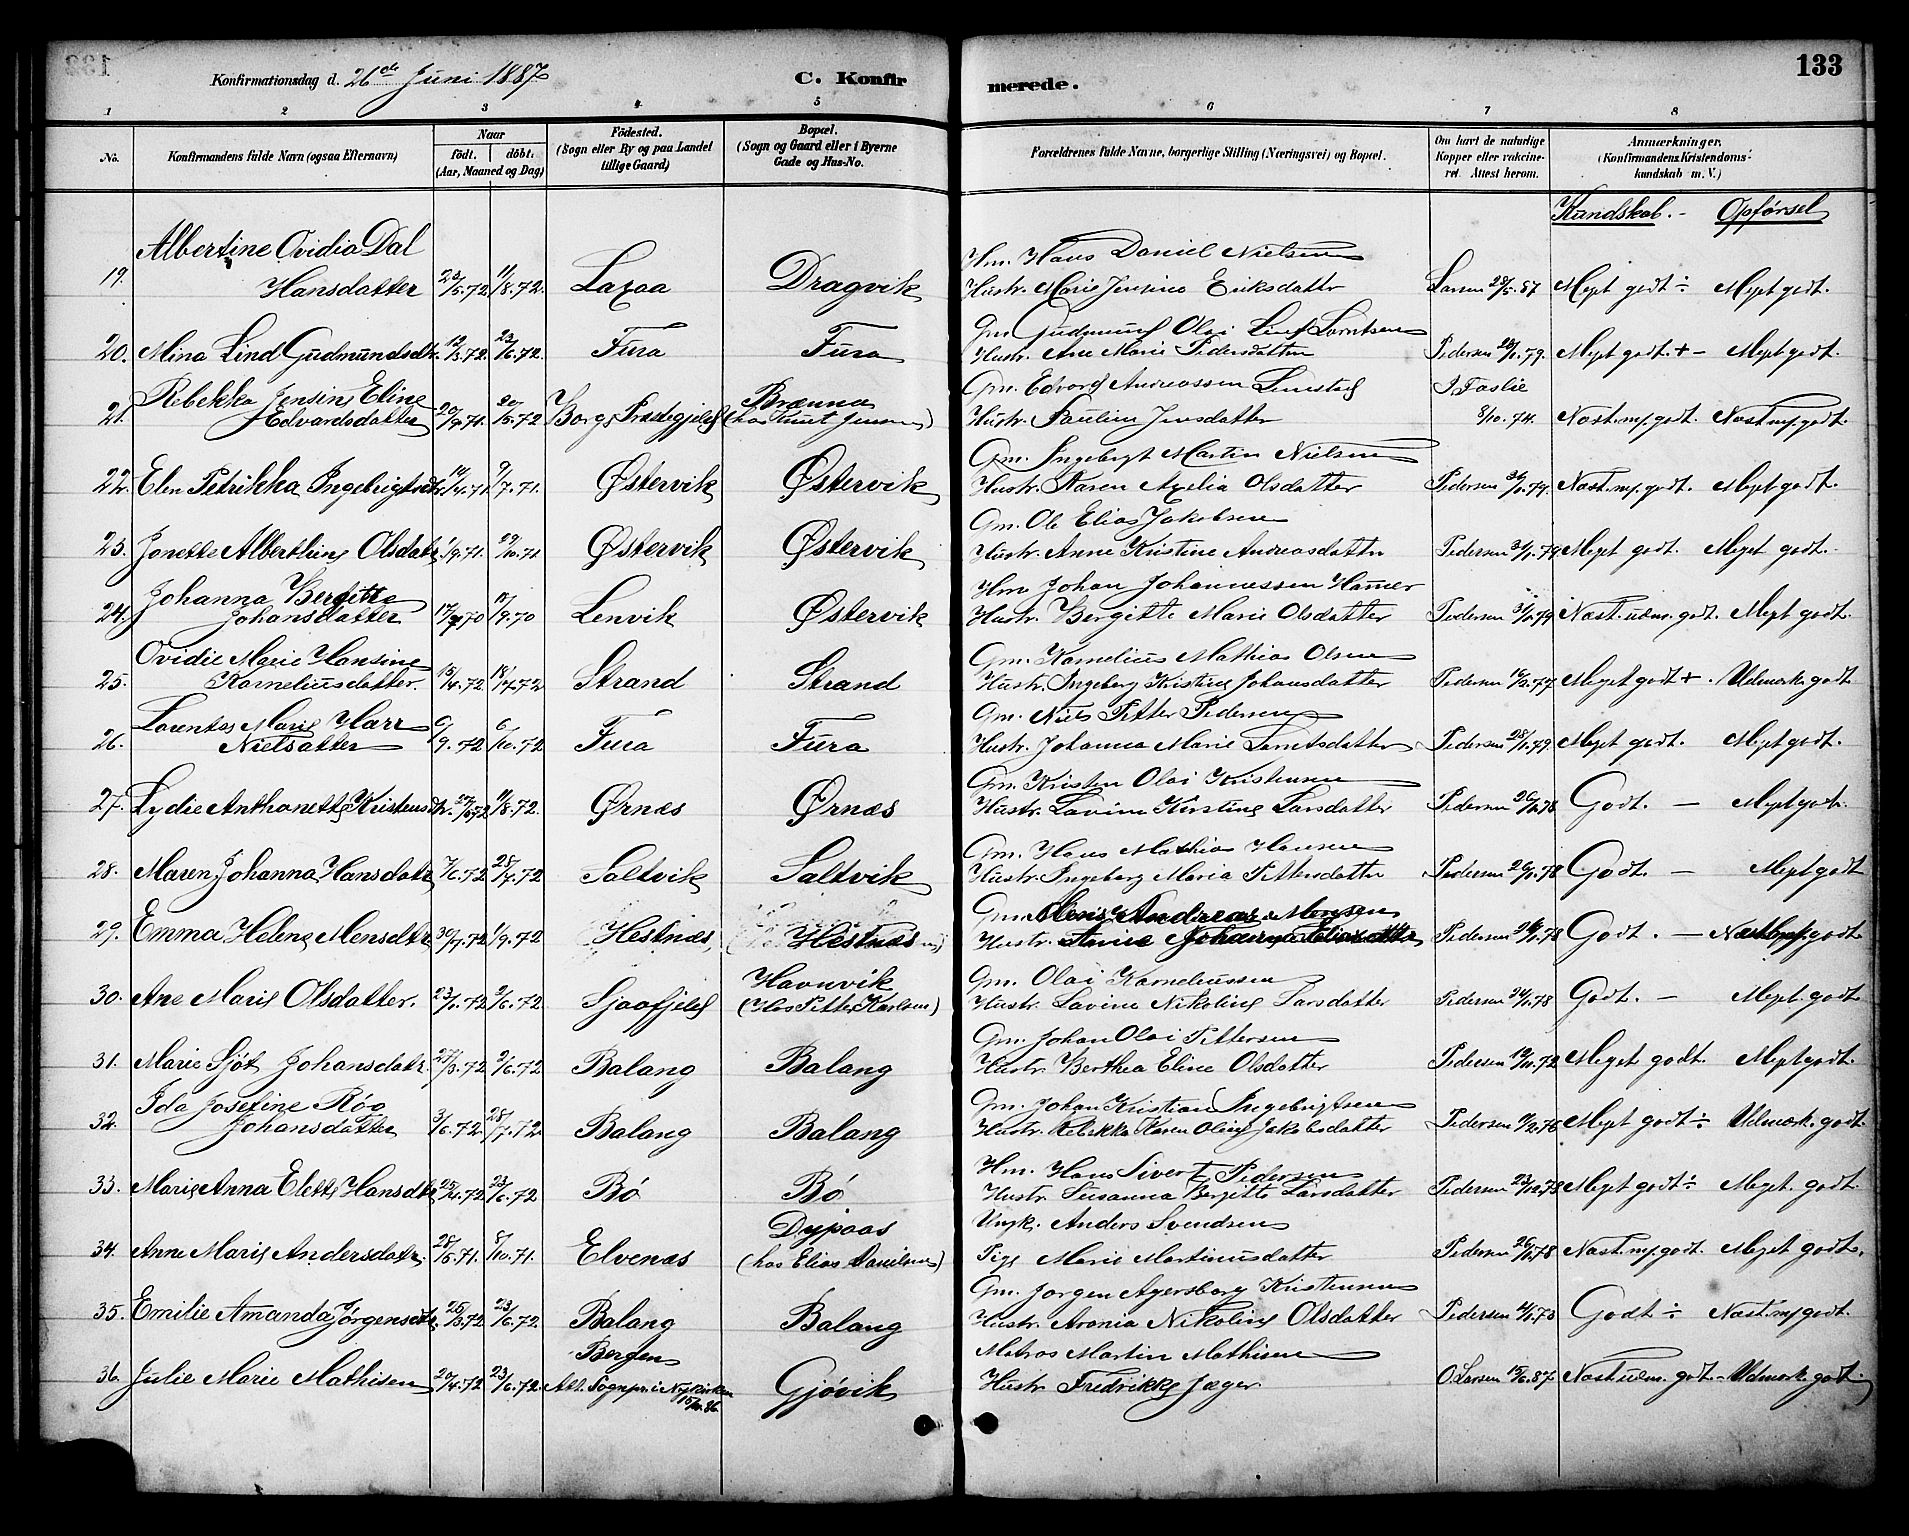 133
Konfirmationsdag d. 26de Juni 1887
C. Konfirmerede.
1 2 3 4 5 6 7 8
No.
Konfirmandens fulde Navn (ogsaa Efternavn)
Naar
födt. döbt.
(Aar, Maaned og Dag)
Födested.
(Sogn eller By og paa Landet
tillige Gaard)
Bopæl.
(Sogn og Gaard eller i Byerne
Gade og Hus-No.
Forældrenes fulde Navne, borgerlige Stilling (Næringsvei) og Bopæl.
Om havt de naturlige
Kopper eller vakcine-
ret. Attest herom.
Anmærkninger,
(Konfirmandens Kristendoms-
kundskab m. V.)
Kundskab. - Opførsel
Albertine Ovidia Dal Hm. Hans Daniel Nielsen
19. Hansdatter 23/5.72 11/8.72. Laxaa Dragvik Hustr. Marie Jensine Eriksdatter Larsen 29/5.87 Meget godt ÷ Meget godt.
Gm. Gudmund Olai Lind Lorntsen
20. Mina Lind Gudmundsdtr. 13/3.72. 23/6.72. Fura Fura Hustr. Ane Marie Pedersdatter Pedersen 28/1.79. Meget godt. + - Meget godt.
Rebekka Jensine Eline Brænna Gm. Edvard Andreassen Lenstad J. Faslie
21. Edvardsdatter 20/9.71. 20/5.72 Borge Præstegjeld (hos Knut Jensen) Hustr. Pauline Jensdatter 8/10.74. Næst. m. godt. Næst m. godt.
Gm. Ingebrigt Martin Nielsen
22. Elen Petrikka Ingebrigtsdtr. 14/4.71. 9/7.71. Østervik Østervik Hustr. Karen Axelia Olsdatter Pedersen 31/1.79. Næst. m. godt. Meget godt.
Gm. Ole Elias Jakobsen
23. Jonette Alberthine Olsdatr. 1/9.71. 29/10.71 Østervik Østervik Hustr. Anne Kristine Andreasdatter Pedersen 31/1.79 Meget godt. Meget godt.
Johanna Bergitte Hm Johan Johannessen Hamer
24. Johansdatter 17/7.70 17/9.70 Lenvik Østervik Hustr. Bergitte Marie Olsdatter Pedersen 31/1.79 Næst. udm. godt. Meget godt.
Ovidie Marie Hansine Gm. Kornelius Mathias Olsen
25. Korneliusdatter. 15/4.72 18/7.72 Strand Strand Hustr. Ingeborg Kristine Johansdatter Pedersen 16/2.77 Meget godt +. Udmærk. godt
Lorentze Marie Harr Gm. Niels Petter Pedersen
26. Nielsatter 6/9.72 6/10.72 Fura Fura Hustr. Johanna Marie Lorntsdatter Pedersen 28/1.79. Meget godt. Meget godt.
Gm. Kristen Olai Kristensen
27. Lydie Anthonette Kristensdtr. 11/8.72. Ørnæs Ørnæs Hustr. Lavine Kirstine Larsdatter Pedersen 26/1.78 Godt. — Meget godt.
Gm. Hans Mathias Hansen
28. Maren Johanna Hansdatr. 7/6.72 28/7.72 Saltvik Saltvik Hustr. Ingeborg Maria Pettersdatter Pedersen 26/1.78 Godt. — Meget godt
Gm. Mons Andreas Monsen
29. Emma Helene Mensdtr. 30/7.72 1/9.72 Hestnæs Hestnæs Hustr. Anne Johanna Eliasdatter Pedersen 24/1.78 Godt. — Næst m. godt.
Havnvik Gm. Olai Korneliussen
30. Ane Marie Olsdatter. 23/1.72 2/6.72. Sjaafjeld (Hos Petter Karlsen) Hustr. Lavine Nikoline Larsdatter Pedersen 24/1.78 Godt. — Meget. godt
Gm. Johan Olai Pettersen
31. Marie Sjøt Johansdatr. 27/3.72 2/6.72 Balang Balang Hustr. Berthea Eline Olsdatter Pedersen 19/11.72 Meget godt. Meget godt.
Ida Josefine Röo Gm. Johan Kristian Ingebrigtsen
32. Johansdatter 3/6.72 28/7.72 Balang Balang Hustr. Rebekka Karen Oline Jakobsdatter Pedersen 11/2.76 Meget godt ÷ Udmærk. godt.
Hm. Hans Sivert Pedersen
33. Marie Anna Elette Hansdtr. 25/4.72 23/6.72. Bö Bö Hustr. Susanna Bergitte Larsdatter Pedersen 23/12.73 Meget godt ÷ Meget. godt.
Dypaas Ungk. Anders Svendsen
34. Anne Marie Andersdatr. 28/5.71. 8/10.71. Elvenæs (hos Elias Danielsen) Pige Marie Martinusdatter Pedersen 26/1.78 Næst. m. godt. Meget godt.
Gm. Jørgen Agersborg Kristensen
35. Emilie Amanda Jörgensdtr. 25/3.72 23/6.72. Balang Balang Hustr. Aronia Nikoline Olsdatter Pedersen 21/1.73 Godt ÷ Næst. m. godt.
Bergen Matros Martin Mathisen
36. Julie Marie Mathisen 20/4.72 23/6.72. Att. Sognepr. i Nykirken 15/10.86. Gjövik Hustr. Fredrikke Jæger O. Larsen 15/6.87. Næst udm. godt. - Udmærk. godt.